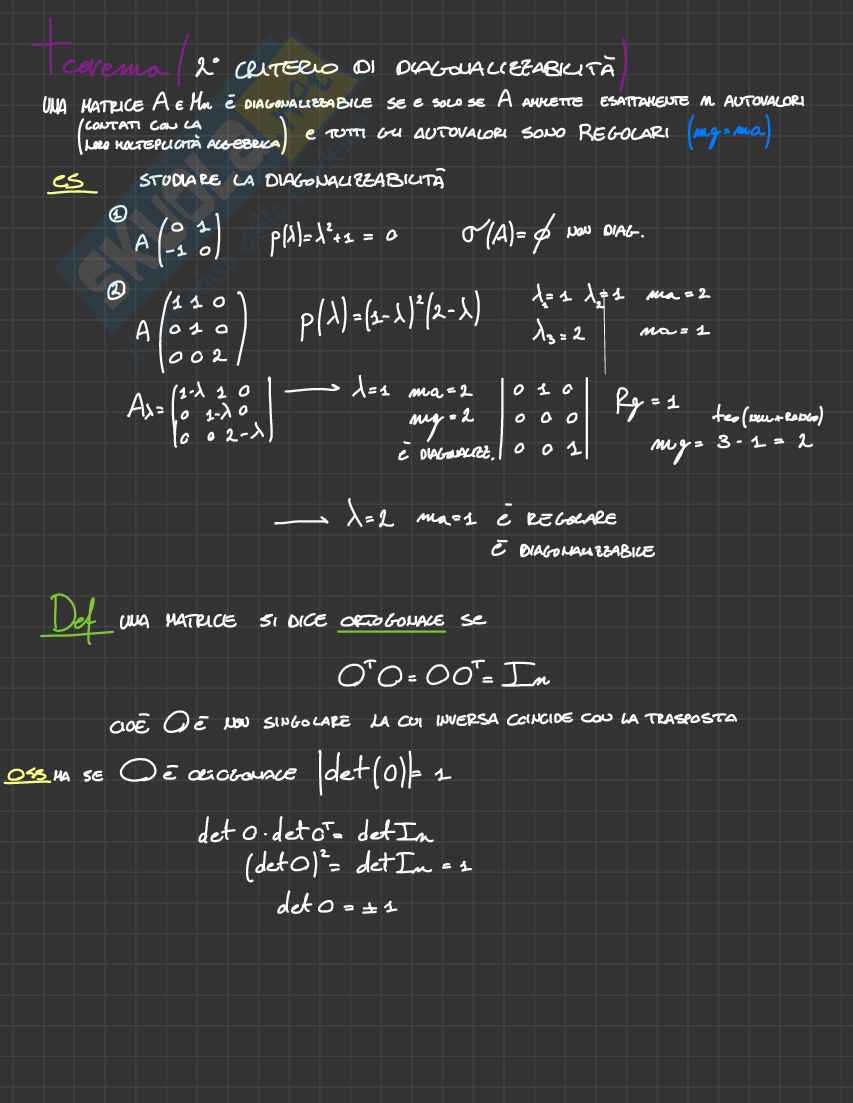 Teorema (2° CRITERIO DI DIAGONALIZZABILITÀ)
UNA MATRICE A ∈ Mn È DIAGONALIZZABILE SE E SOLO SE A AMMETTE ESATTAMENTE n AUTOVALORI
(CONTATI CON LA LORO MOLTEPLICITÀ ALGEBRICA) E TUTTI GLI AUTOVALORI SONO REGOLARI (mg=ma)
es STUDIARE LA DIAGONALIZZABILITÀ
①
A (0 1
-1 0) p(λ)=λ²+1 = 0 σ(A)=∅ NON DIAG.
②
A (1 1 0
0 1 0
0 0 2) p(λ)=(1-λ)²(2-λ)
λ₁=1 λ₂=1 ma=2
λ₃=2 ma=1
Aλ= (1-λ 1 0
0 1-λ 0
0 0 2-λ|
→ λ=1 ma=2
mg=2
È DIAGONALIZZ.
|0 1 0
0 0 0
0 0 1| Rg=1
teo
mg= 3-1=2
→ λ=2 ma=1 È REGOLARE
È DIAGONALIZZABILE
Def UNA MATRICE SI DICE ORTOGONALE SE
OᵀO=OOᵀ=In
CIOÈ O È NON SINGOLARE LA CUI INVERSA COINCIDE CON LA TRASPOSTA
OSS MA SE O È ORTOGONALE |det(O)|= 1
det O · det Oᵀ= det In
(det O)²= det In = 1
det O = ± 1
SKUOLA.NET